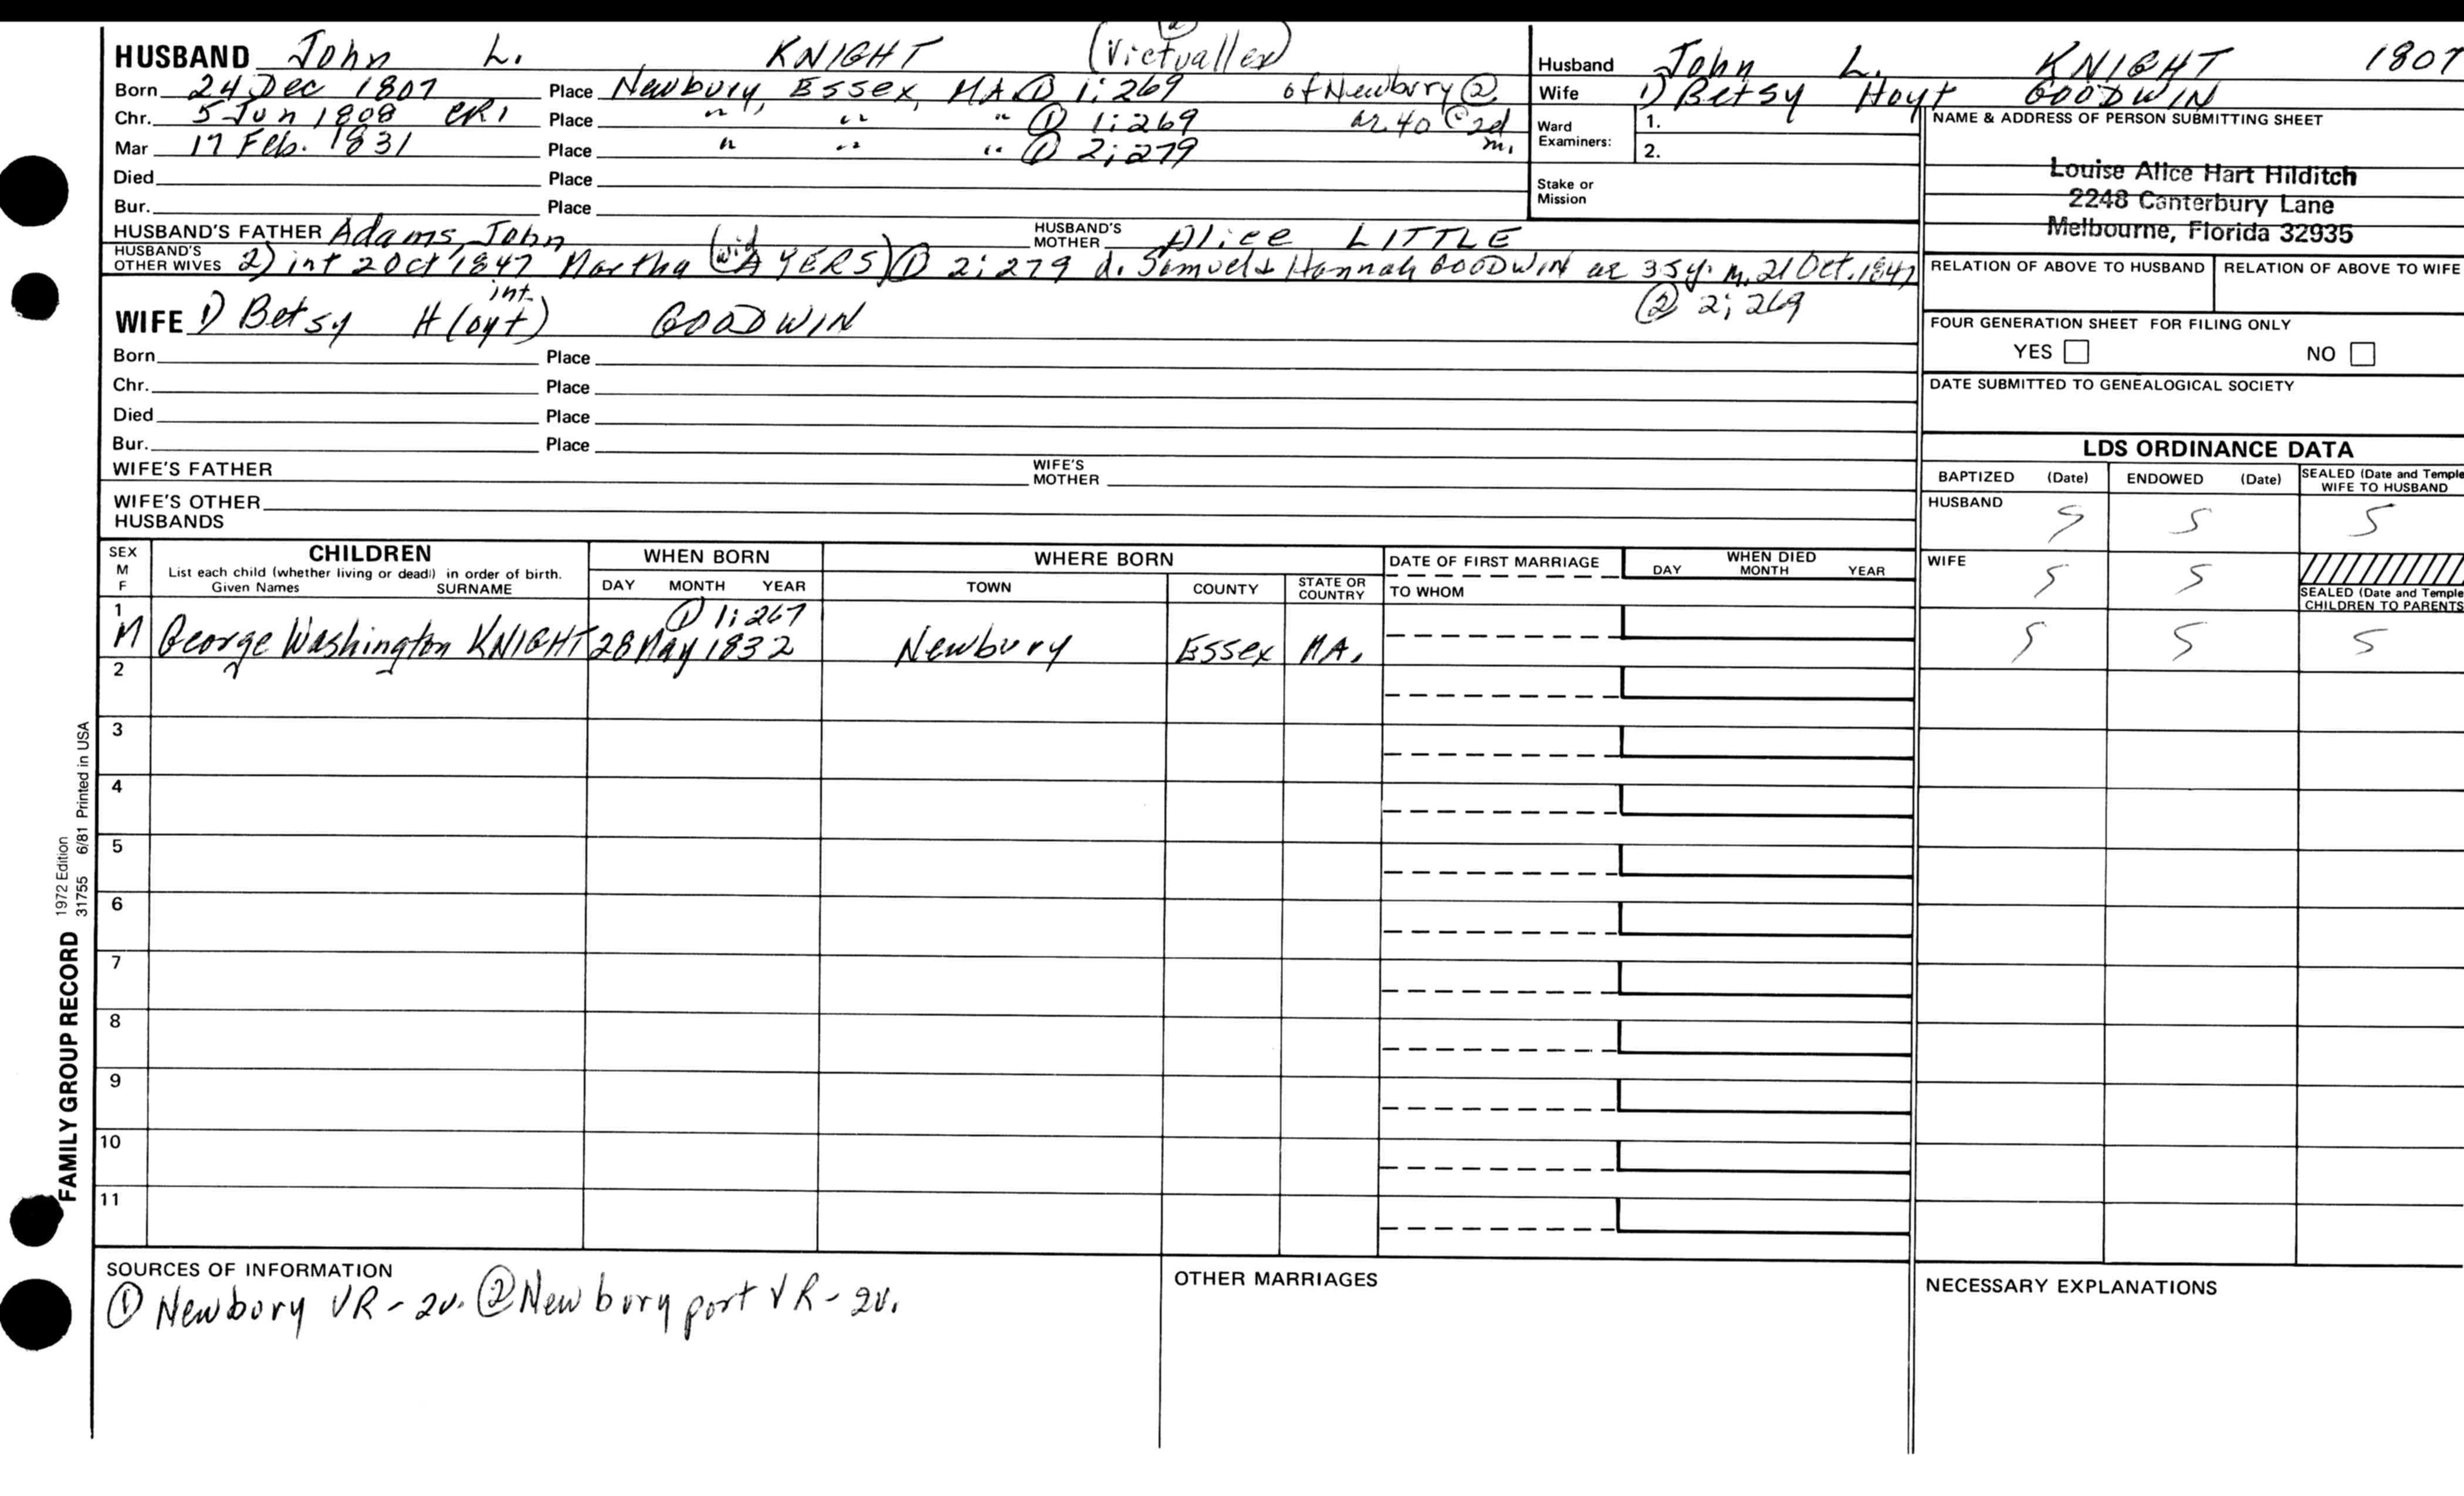 ②
HUSBAND John L. KNIGHT (Victualler)
Born 24 Dec 1807 Place Newbury, Essex, MA ① 1:269 of Newbury ②
Chr. 5 Jun 1808 CR1 Place " " " ① 1:269 ae. 40 @ 2d
Mar 17 Feb. 1831 Place " " " ① 2:279 m.
Died Place
Bur. Place
HUSBAND'S FATHER Adams, John HUSBAND'S MOTHER Alice LITTLE
HUSBAND'S OTHER WIVES 2) int 2 Oct 1847 Martha (wid AYERS) ① 2:279 d. Samuel & Hannah GOODWIN ae 35 y. m. 21 Oct. 1847
② 2:269
int.
WIFE 1) Betsy H(oyt) GOODWIN
Born Place
Chr. Place
Died Place
Bur. Place
WIFE'S FATHER WIFE'S MOTHER
WIFE'S OTHER HUSBANDS
Husband John L. KNIGHT 1807
Wife 1) Betsy Hoyt GOODWIN
Ward Examiners: 1.
2.
Stake or Mission
NAME & ADDRESS OF PERSON SUBMITTING SHEET
Louise Alice Hart Hilditch
2248 Canterbury Lane
Melbourne, Florida 32935
RELATION OF ABOVE TO HUSBAND RELATION OF ABOVE TO WIFE
FOUR GENERATION SHEET FOR FILING ONLY
YES NO
DATE SUBMITTED TO GENEALOGICAL SOCIETY
LDS ORDINANCE DATA
BAPTIZED (Date) ENDOWED (Date) SEALED (Date and Temple
WIFE TO HUSBAND
HUSBAND S S S
WIFE S S
SEALED (Date and Temple
CHILDREN TO PARENTS
S S S
SEX M F
CHILDREN
List each child (whether living or dead) in order of birth.
Given Names SURNAME
WHEN BORN
DAY MONTH YEAR
WHERE BORN
TOWN COUNTY STATE OR COUNTRY
DATE OF FIRST MARRIAGE
TO WHOM
WHEN DIED
DAY MONTH YEAR
1 ① 1:267
M George Washington KNIGHT 28 May 1832 Newbury Essex MA.
2
3
4
5
6
7
8
9
10
11
FAMILY GROUP RECORD 1972 Edition
31755 6/81 Printed in USA
SOURCES OF INFORMATION
① Newbury VR - 2v. ② Newburyport VR - 2v.
OTHER MARRIAGES
NECESSARY EXPLANATIONS